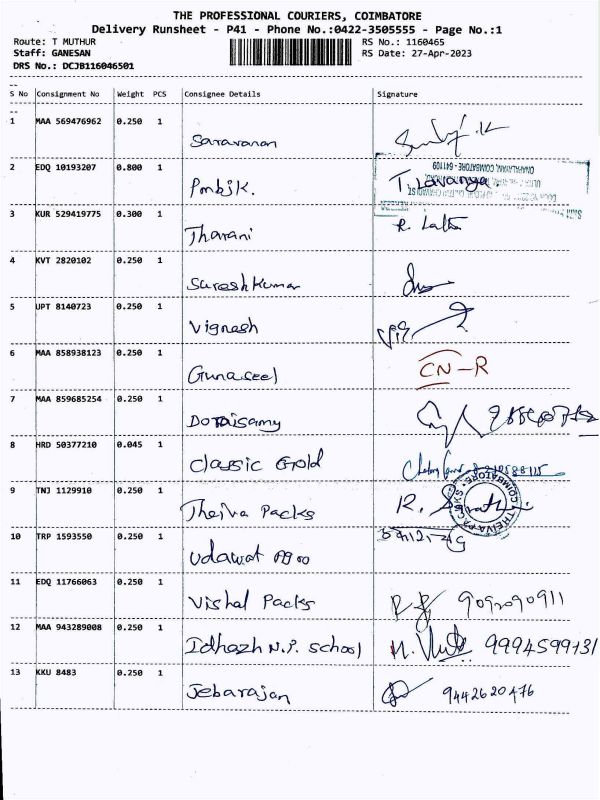 THE PROFESSIONAL COURIERS, COIMBATORE
Delivery Runsheet - P41 - Phone No.:0422-3505555 - Page No.:1
Route: T MUTHUR RS No.: 1160465
Staff: GANESAN RS Date: 27-Apr-2023
DRS No.: DCJB116046501
S No Consignment No Weight PCS Consignee Details Signature
1 MAA 569476962 0.250 1 Saravanan
2 EDQ 10193207 0.800 1 T. Lavanya
ONAPALAYAM, COIMBATORE - 641109
3 KUR 529419775 0.300 1 Tharani R. Latha
4 KVT 2820102 0.250 1 Suresh Kumar
5 UPT 8140723 0.250 1 Vignesh
6 MAA 858938123 0.250 1 Gunaseel CN-R
7 MAA 859685254 0.250 1 Doraisamy
8 HRD 50377210 0.045 1 Classic Gold
9 TNJ 1129910 0.250 1 Theiva Packs
THEIVA PACKS COIMBATORE
10 TRP 1593550 0.250 1 Udawat
11 EDQ 11766063 0.250 1 Vishal Packs 9092090911
12 MAA 943289008 0.250 1 Idhazh N.P. School 9994599131
13 KKU 8483 0.250 1 Jebarajan 9442620476